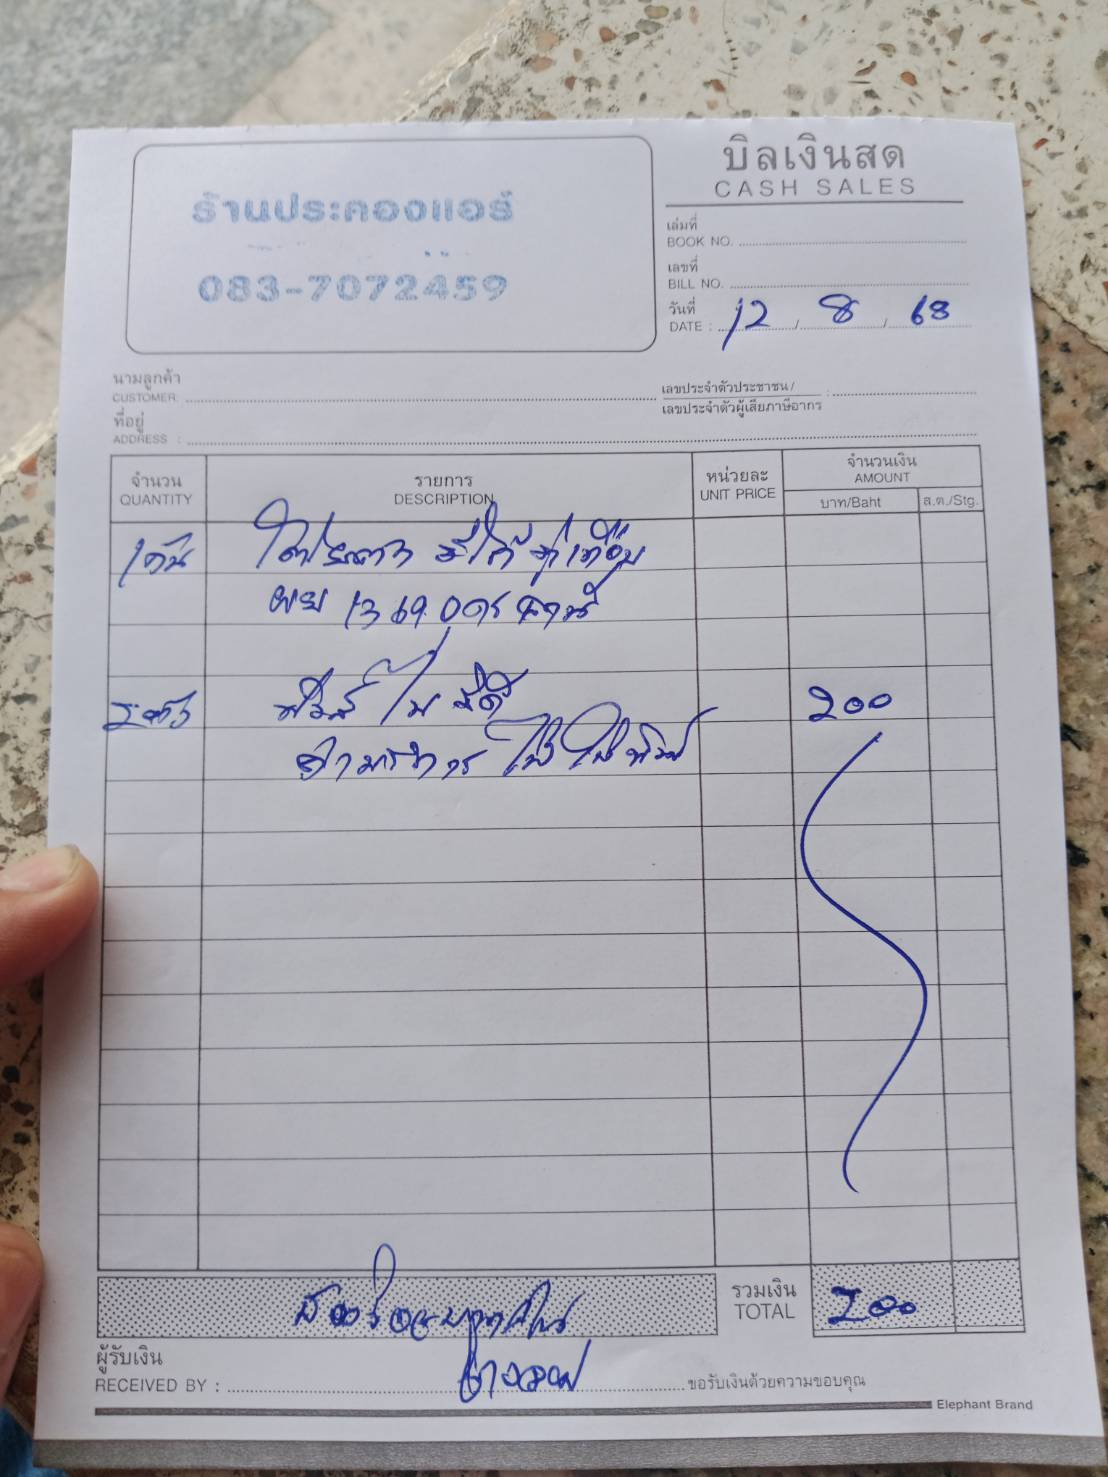 บิลเงินสด
CASH SALES
ร้านประคองแอร์
083-7072459
เล่มที่
BOOK NO.
เลขที่
BILL NO.
วันที่
DATE : 12 / 8 / 68
นามลูกค้า
CUSTOMER:
เลขประจำตัวประชาชน /
เลขประจำตัวผู้เสียภาษีอากร :
ที่อยู่
ADDRESS :
จำนวน
QUANTITY
รายการ
DESCRIPTION
หน่วยละ
UNIT PRICE
จำนวนเงิน
AMOUNT
บาท/Baht
ส.ต./Stg.
1 คัน
ผย 1369 อุดรธานี
200
รวมเงิน
TOTAL
สองร้อยบาทถ้วน
200
ผู้รับเงิน
RECEIVED BY :
ขอรับเงินด้วยความขอบคุณ
Elephant Brand